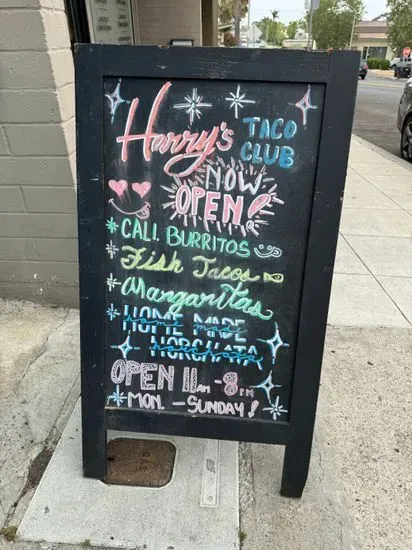 Harry's TACO CLUB
NOW
OPEN!
CALI BURRITOS
Fish Tacos
Mangaritas
HOME MADE
home made
HORCHATA
horchata
OPEN 11AM - 8PM
MON. - SUNDAY!
GAS